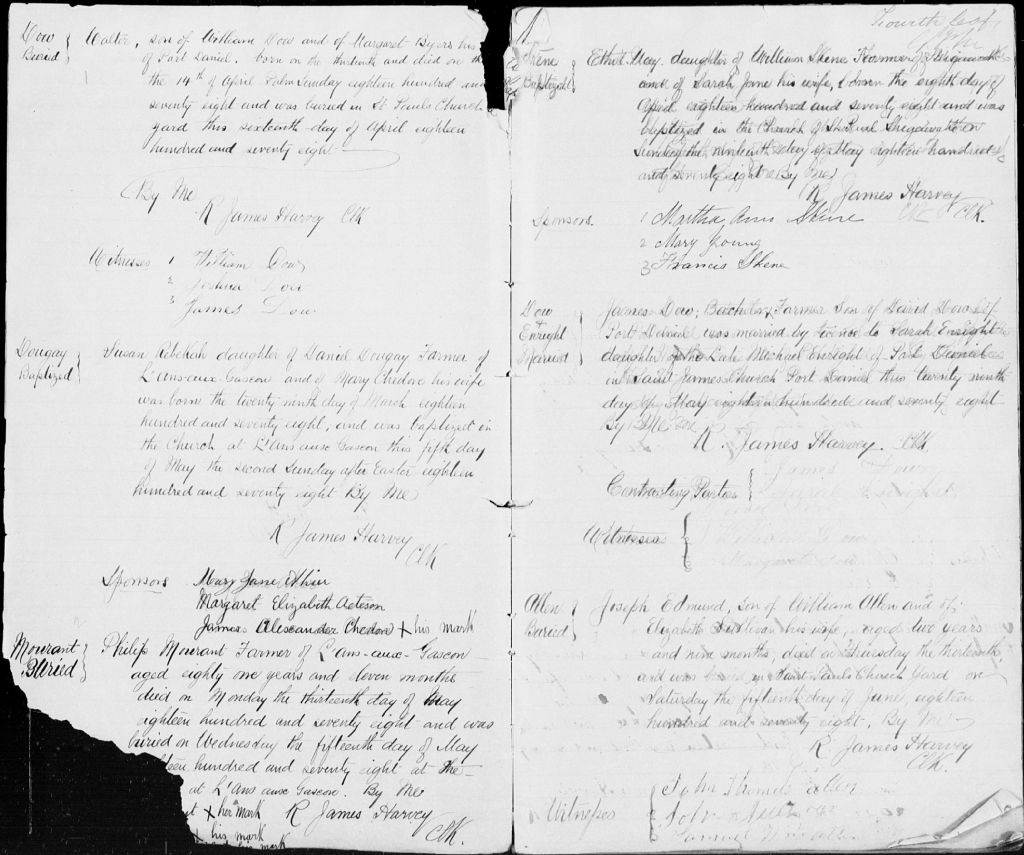 Dow
Buried
Walter, son of William Dow and of Margaret Byers his
of Port Daniel. born on the thirteenth and died on th
the 14th of April Palm Sunday eighteen hundred and
seventy eight and was buried in St Pauls Church
yard this sixteenth day of April eighteen
hundred and seventy eight
By Me
R James Harvey Clk
Witnesses 1 William Dow
2 Joshua Dow
3 James Dow
Dougay
Baptized
Susan Rebekah daughter of Daniel Dougay Farmer of
L'Ans-aux-Gascon and of Mary Chedore his wife
was born the twenty ninth day of March eighteen
hundred and seventy eight; and was baptized in
the Church at L'Ans aux Gascon this fifth day
of May the second Sunday after Easter eighteen
hundred and seventy eight By Me
R James Harvey
Clk
Sponsors Mary Jane
Margaret Elizabeth Acteson
James Alexander Chedore X his mark
Mourant
Buried
Philip Mourant Farmer of L'ans-aux-Gascon
aged eighty one years and eleven months
died on Monday the thirteenth day of May
eighteen hundred and seventy eight and was
buried on Wednesday the fifteenth day of May
een hundred and seventy eight at the
at L'Ans aux Gascon. By Me
t X her mark R James Harvey
X his mark Clk.
his mark
Fourth
Skene
Baptized
Ethel May daughter of William Skene Farmer of Shigawake
and of Sarah Jane his wife, born the eighth day of
April eighteen hundred and seventy eight and was
baptized in the Church of St Paul Shigawake on
Sunday the nineteenth day of May eighteen hundred
and seventy eight By me
R James Harvey
Clk.
Sponsors. 1 Martha Ann Skene
2 Mary Young
3 Francis Skene
Dow
+
Enright
Married
James Dow, Batchelor, Farmer Son of David Dow of
Port Daniel was married by banns to Sarah Enright
daughter of the Late Michael Enright of Port Daniel
in Saint James Church Port Daniel this twenty ninth
day of May eighteen hundred and seventy eight
By Me
R. James Harvey. Clk.
Contracting Parties { James Dow
Sarah Enright
Witnesses { William Dow
Margaret
Allen
Buried
Joseph Edmund, Son of William Allen and of
Elizabeth Sullivan his wife, aged two years
and nine months died on Thursday the thirteenth
and was buried in Saint Pauls Church Yard on
Saturday the fifteenth day of June, eighteen
hundred and seventy eight. By Me
R James Harvey
Clk.
Witnesses { John Thomas Allen
John
Samuel